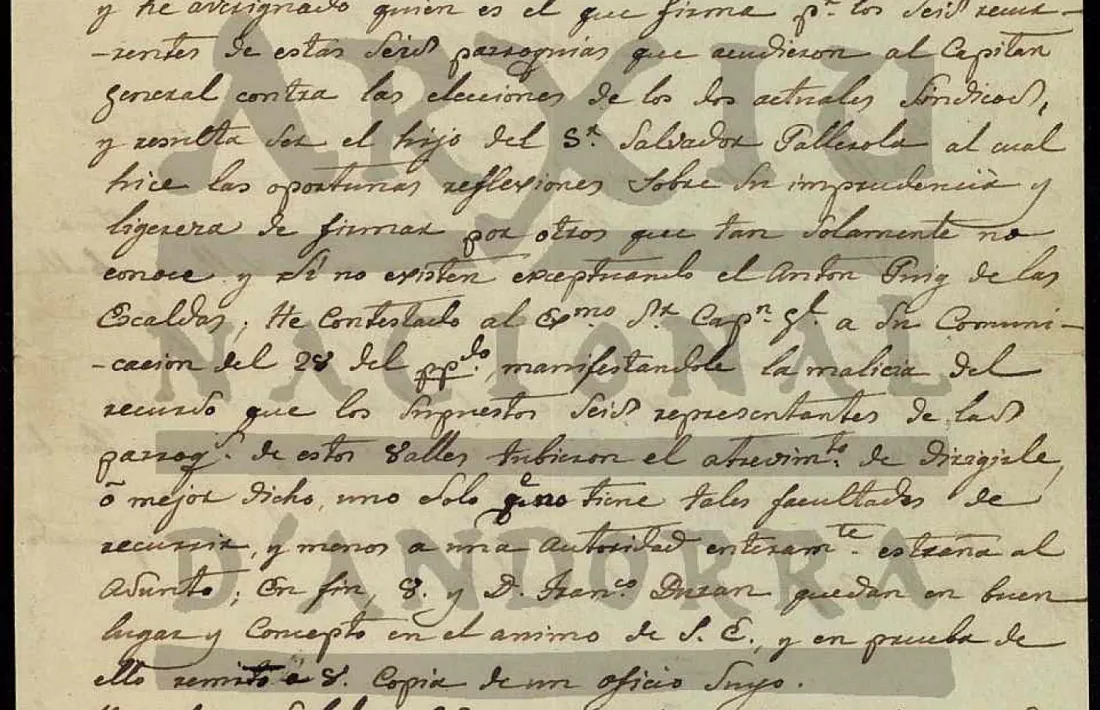 y he aversignado quien es el que firma p.r los seis recur-
-rentes de estas seis parroquias que acudieron al Capitan
general contra las elecciones de los dos actuales Sindicos,
y resulta ser el hijo del S.r Salvador Pallerola al cual
hice las oportunas reflexiones sobre su imprudencia y
ligereza de firmar por otros que tan solamente no
conoce y si no existen exceptuando el Anton Puig de las
Escaldas; He Contestado al Ex.mo S.r Cap.n G.l a su Comuni-
-cacion del 28 del pp.do, manifestandole la malicia del
recurso que los supuestos seis representantes de las
parroq.s de estos Valles tubieron el atrevim.to de dirigirle,
ó mejor dicho, uno solo q.e no tiene tales facultades de
recurrir, y menos a una autoridad enteram.te estraña al
Asunto; En fin, V. y D. Fran.co Duran quedan en buen
lugar y Concepto en el animo de S. E., y en prueba de
ello remito á V. Copia de un oficio suyo.
ARXIU
NACIONAL
D'ANDORRA